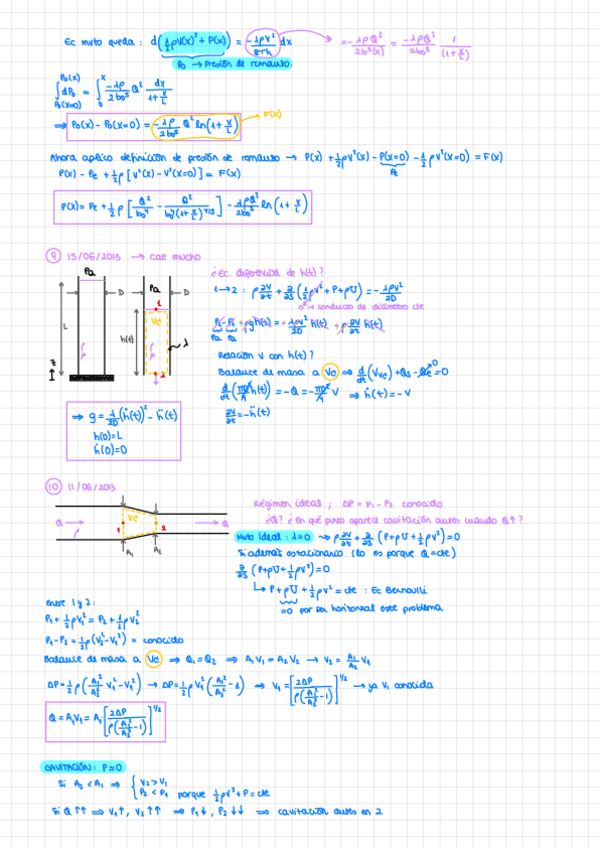 Ec mvto queda: d(½ρV(x)² + P(x)) = -λρV²/8rh dx → = -λρQ²/2b²(x) = -λρQ²/2b₀⁵ 1/(1+x/L)
P₀ → Presión de remanso.
∫dP₀ = ∫ -λρ/2b₀⁵ Q² dx/(1+x/L)
P₀(x)
P₀(x=0)
⇒ P₀(x) - P₀(x=0) = -λρ/2b₀⁵ Q² ln(1+x/L) → F(x)
Ahora aplico definición de presión de remanso → P(x) + ½ρV²(x) - P(x=0) - ½ρV²(x=0) = F(x)
Pe
P(x) - Pe + ½ρ[V²(x) - V²(x=0)] = F(x)
9 15/06/2015 → cae mucho
¿Ec. diferencial de h(t)?
1→2: ρ∂V/∂t + ∂/∂s(½ρV² + P + ρU) = -λρV²/2D
0 → conducto de diámetro cte
Pa
Pa
D
D
L
h(t)
1
VC
2
λ
ρ
μ
z
Relación V con h(t)?
Balance de masa a VC ⇒ d/dt(V_VC) + Qs - Qe = 0
d/dt(πD²/4 h(t)) = -Q = -πD²/4 V ⇒ ḣ(t) = -V
∂V/∂t = -ḧ(t)
⇒ g = λ/2D (ḣ(t))² - ḧ(t)
h(0) = L
ḣ(0) = 0
10 11/06/2013
Régimen ideal; ΔP = P₁ - P₂ conocido
¿Q? ¿En qué punto aparece cavitación antes cuando Q↑?
Q
ρ
1
VC
2
Q
A₁
A₂
Mvto ideal: λ=0 → ρ∂V/∂t + ∂/∂s(P+ρU+½ρV²) = 0
Si además estacionario (lo es porque Q=cte)
∂/∂s(P+ρU+½ρV²) = 0
↳ P + ρU + ½ρV² = cte : Ec Bernoulli
=0 por ser horizontal este problema
Entre 1 y 2:
P₁ + ½ρV₁² = P₂ + ½ρV₂²
P₁ - P₂ = ½ρ(V₂² - V₁²) = conocido
Balance de masa a VC ⇒ Q₁ = Q₂ ⇒ A₁V₁ = A₂V₂ → V₂ = A₁/A₂ V₁
ΔP = ½ρ(A₁²/A₂² V₁² - V₁²) → ΔP = ½ρV₁²(A₁²/A₂² - 1) ⇒ V₁ = [2ΔP/ρ(A₁²/A₂² - 1)]^1/2 → ya V₁ conocida
Q = A₁V₁ = A₁[2ΔP/ρ(A₁²/A₂² - 1)]^1/2
CAVITACIÓN: P≃0
Si A₂ < A₁ ⇒ { V₂ > V₁
P₂ < P₁ porque ½ρV² + P = cte
Si Q↑↑ ⇒ V₁↑, V₂↑↑ ⇒ P₁↓, P₂↓↓ ⇒ cavitación antes en 2